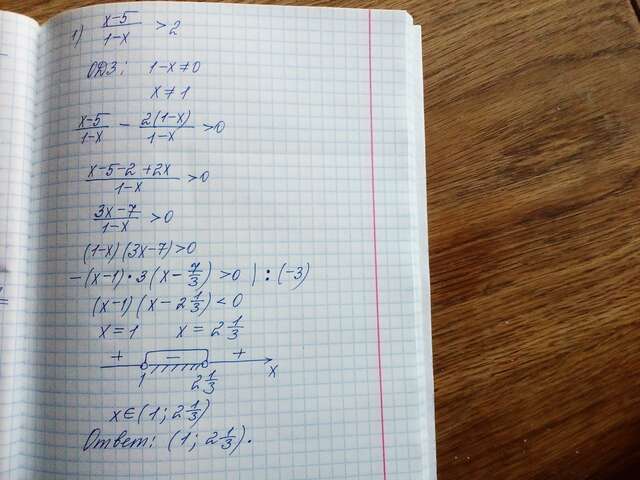 1) (x-5)/(1-x) > 2
ОДЗ: 1-x≠0
x≠1
(x-5)/(1-x) - 2(1-x)/(1-x) >0
(x-5-2+2x)/(1-x) >0
(3x-7)/(1-x) >0
(1-x)(3x-7)>0
-(x-1)·3(x-7/3)>0 | :(-3)
(x-1)(x-2 1/3)<0
x=1 x=2 1/3
+ - +
1 2 1/3 x
x∈(1; 2 1/3)
Ответ: (1; 2 1/3).